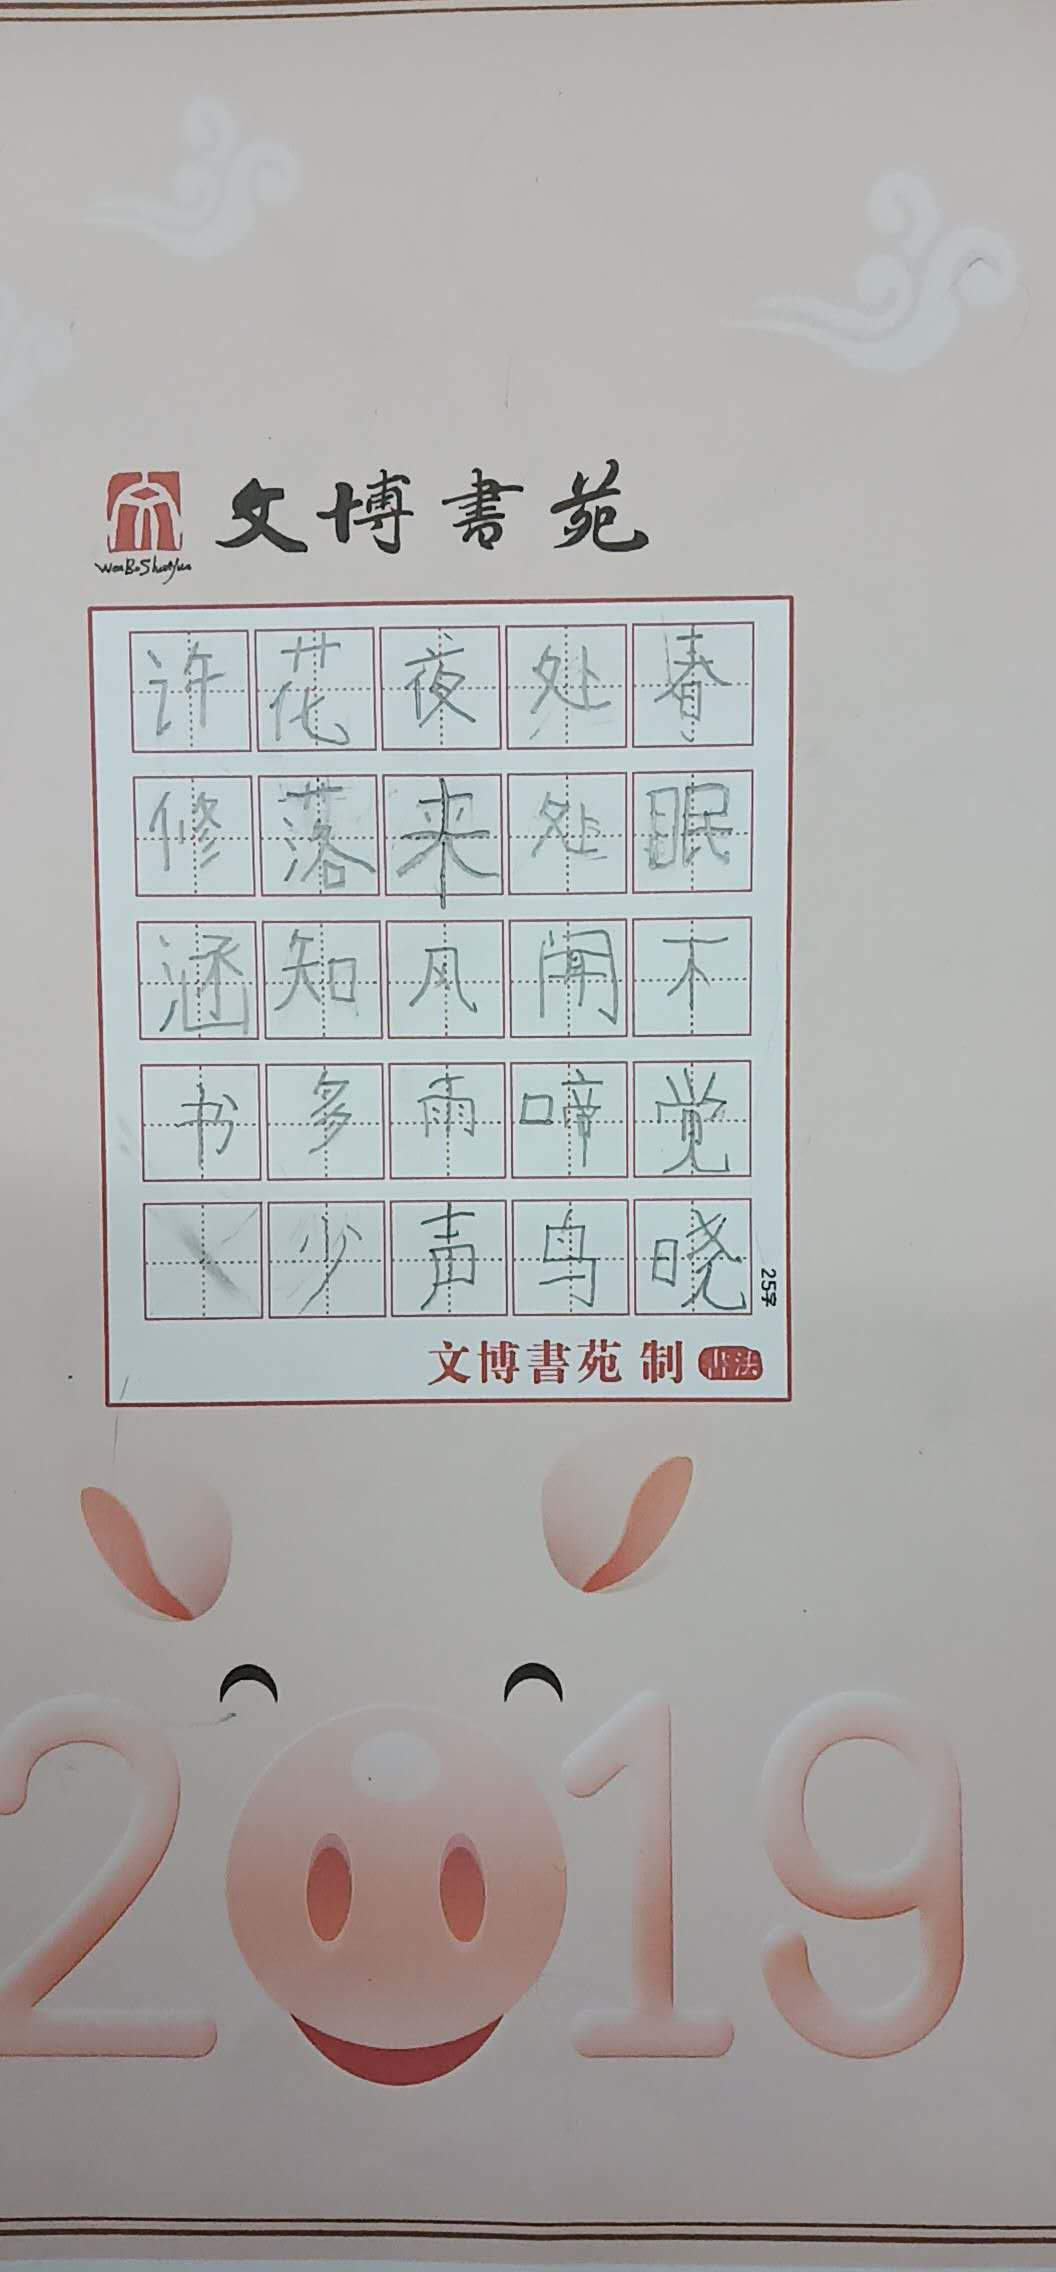 文博書苑
WenBoShuYuan
春眠不觉晓
处处闻啼鸟
夜来风雨声
花落知多少
许修涵书
25字
文博書苑 制 书法
2019